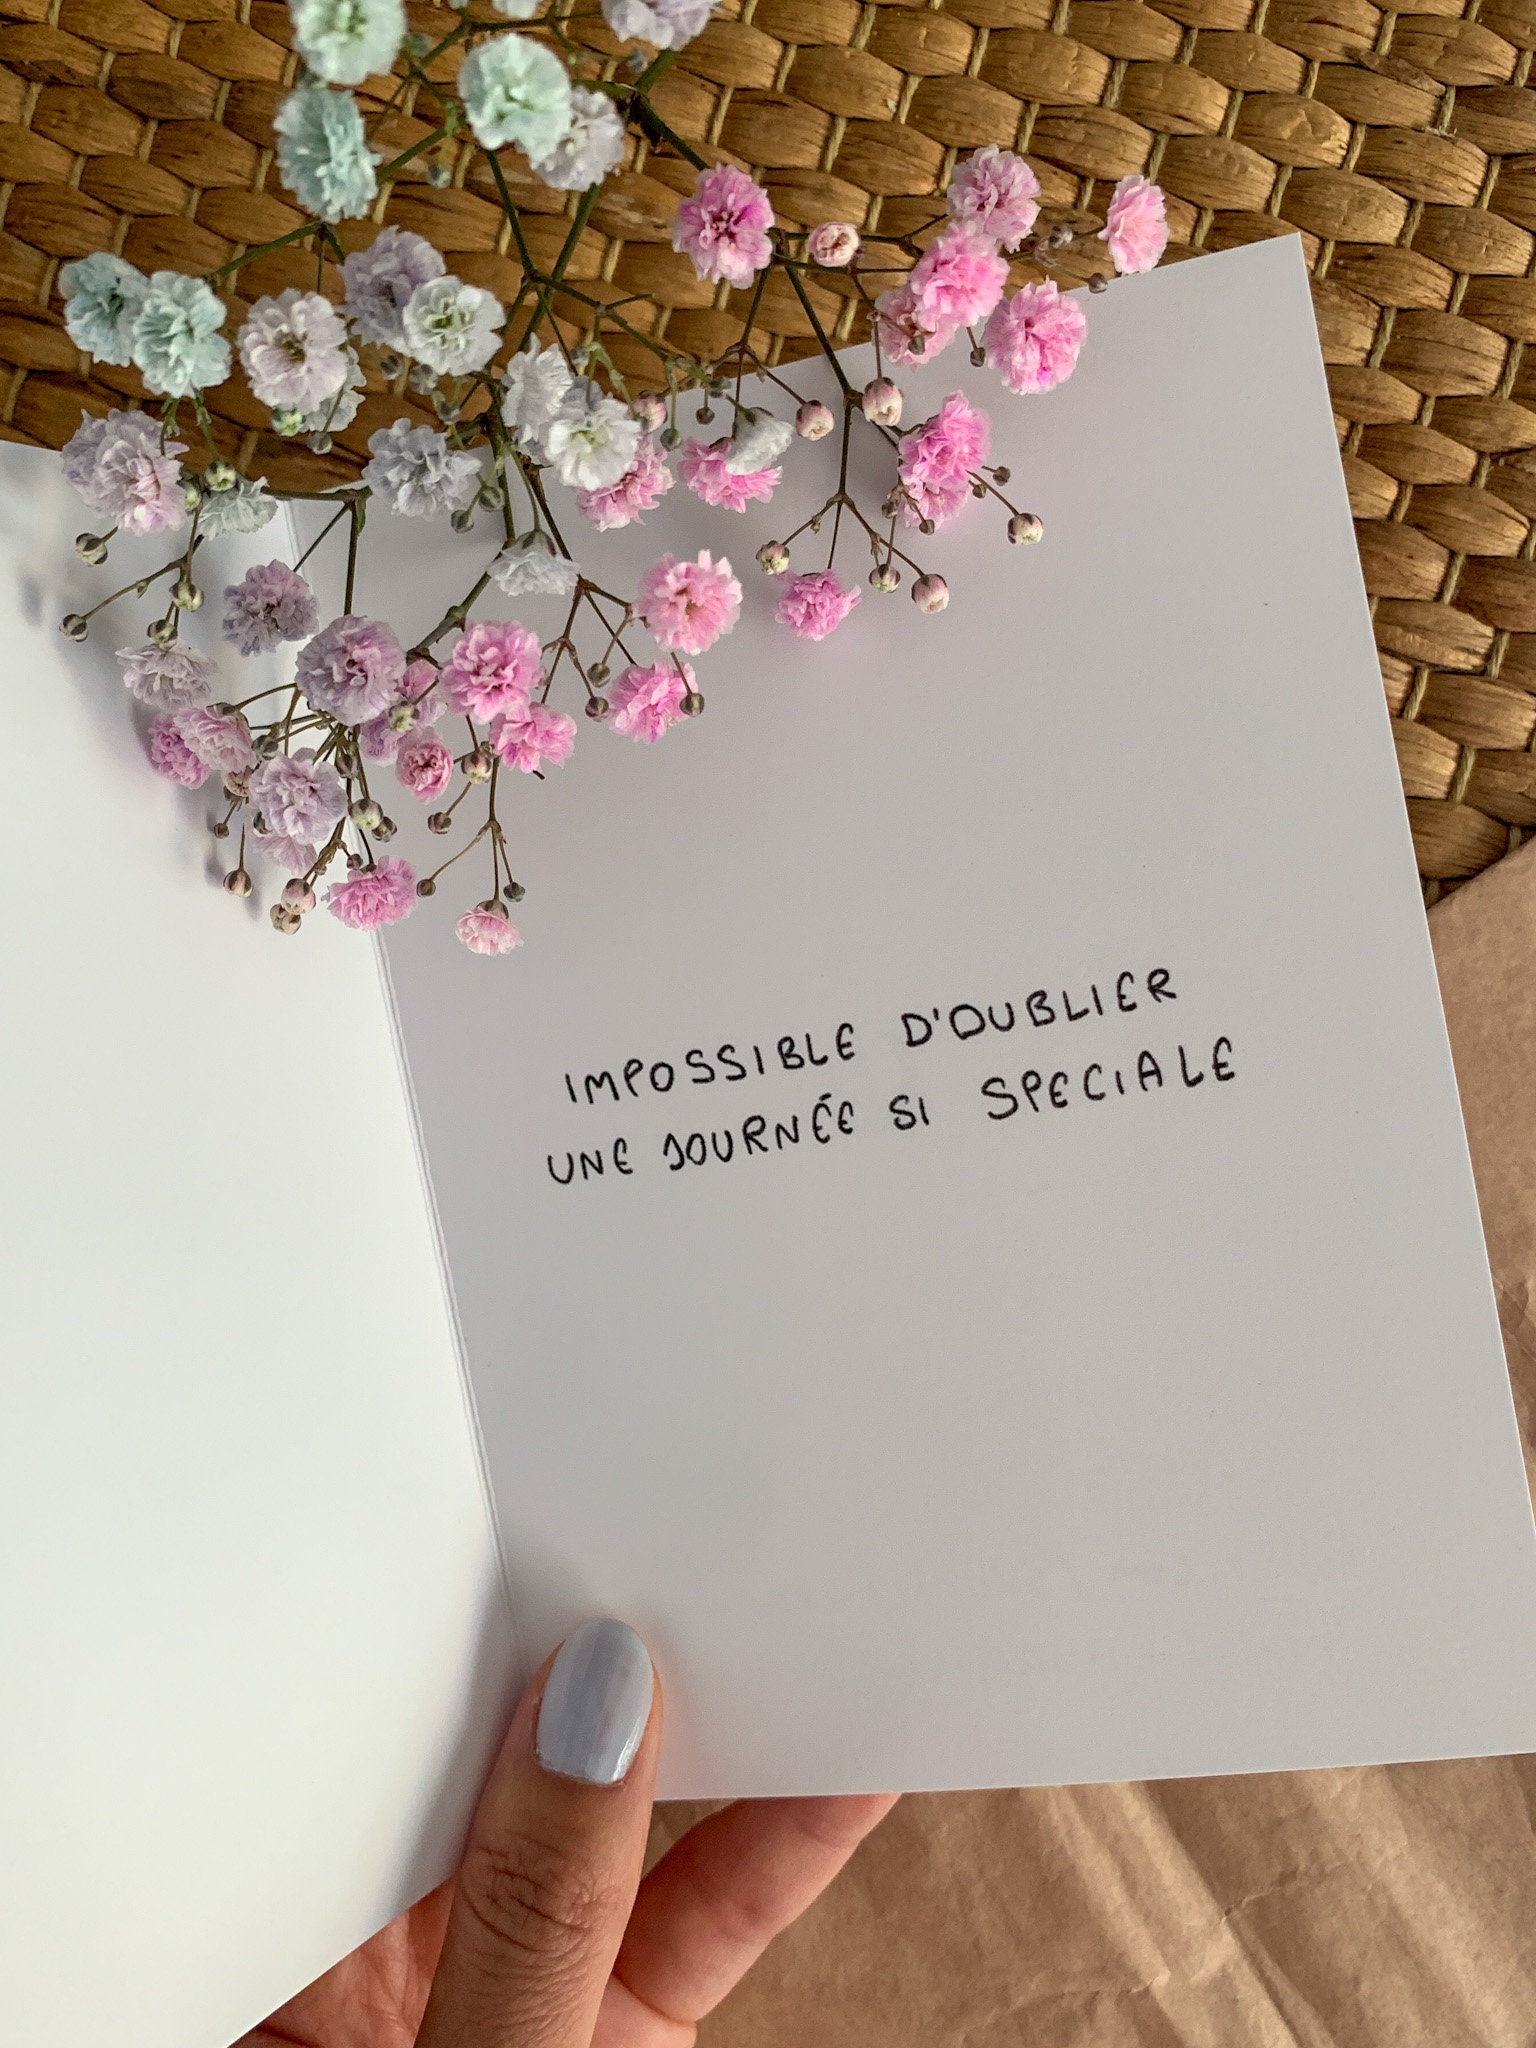 IMPOSSIBLE D'OUBLIER
UNE JOURNÉE SI SPECIALE